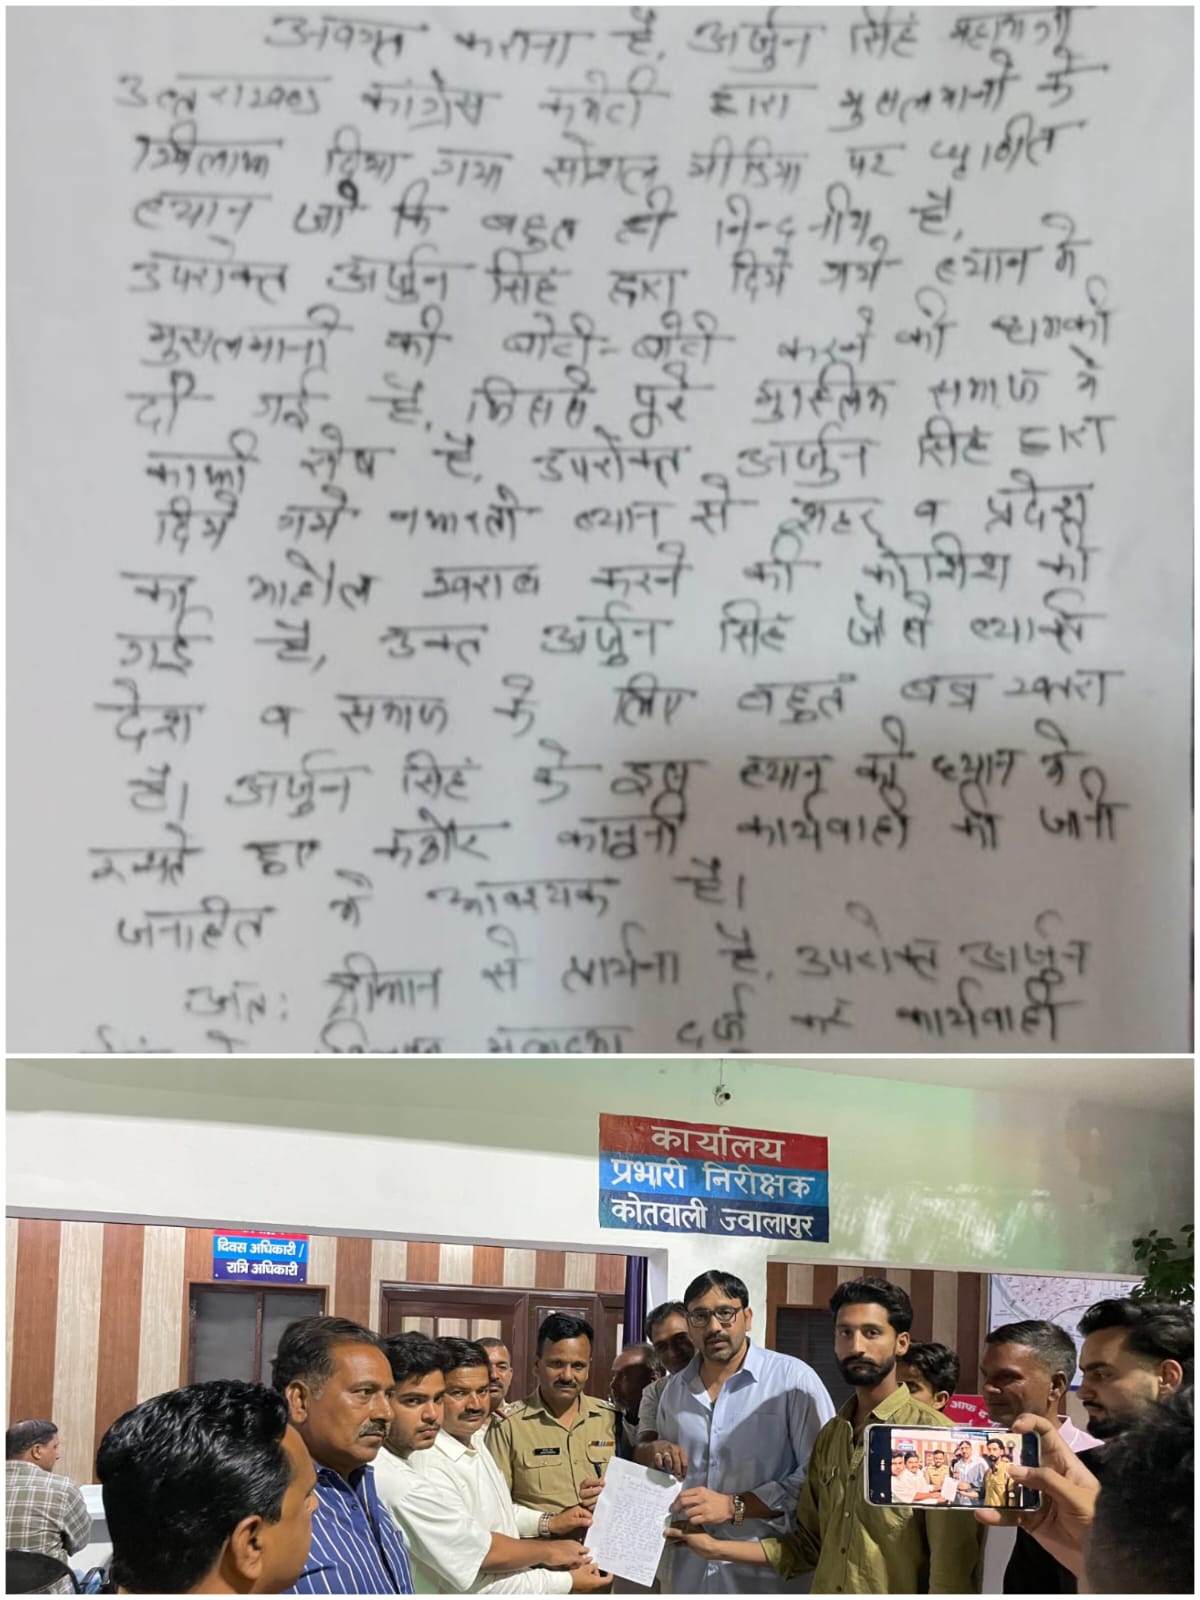 अवगत कराना है, अर्जुन सिंह महामंत्री
उत्तराखण्ड कांग्रेस कमेटी द्वारा मुसलमानों के
खिलाफ दिया गया सोशल मीडिया पर
ब्यान जो कि बहुत ही निन्दनीय है,
उपरोक्त अर्जुन सिंह द्वारा दिये गये ब्यान मे
मुसलमानो की बोटी-बोटी करने की धमकी
दी गई है, जिससे पूरे मुस्लिम समाज मे
काफी रोष है, उपरोक्त अर्जुन सिंह द्वारा
दिये गये ब्यान से शहर व प्रदेश
का माहौल खराब करने की कोशिश की
गई है, उक्त अर्जुन सिंह जैसे व्यक्ति
देश व समाज के लिए बहुत बड़ा खतरा
है। अर्जुन सिंह के इस ब्यान को ध्यान मे
रखते हुए कठोर कानूनी कार्यवाही की जानी
जनहित मे आवश्यक है।
अंत: श्रीमान से प्रार्थना है, उपरोक्त अर्जुन
दर्ज कर कार्यवाही
कार्यालय
प्रभारी निरीक्षक
कोतवाली ज्वालापुर
दिवस अधिकारी /
रात्रि अधिकारी